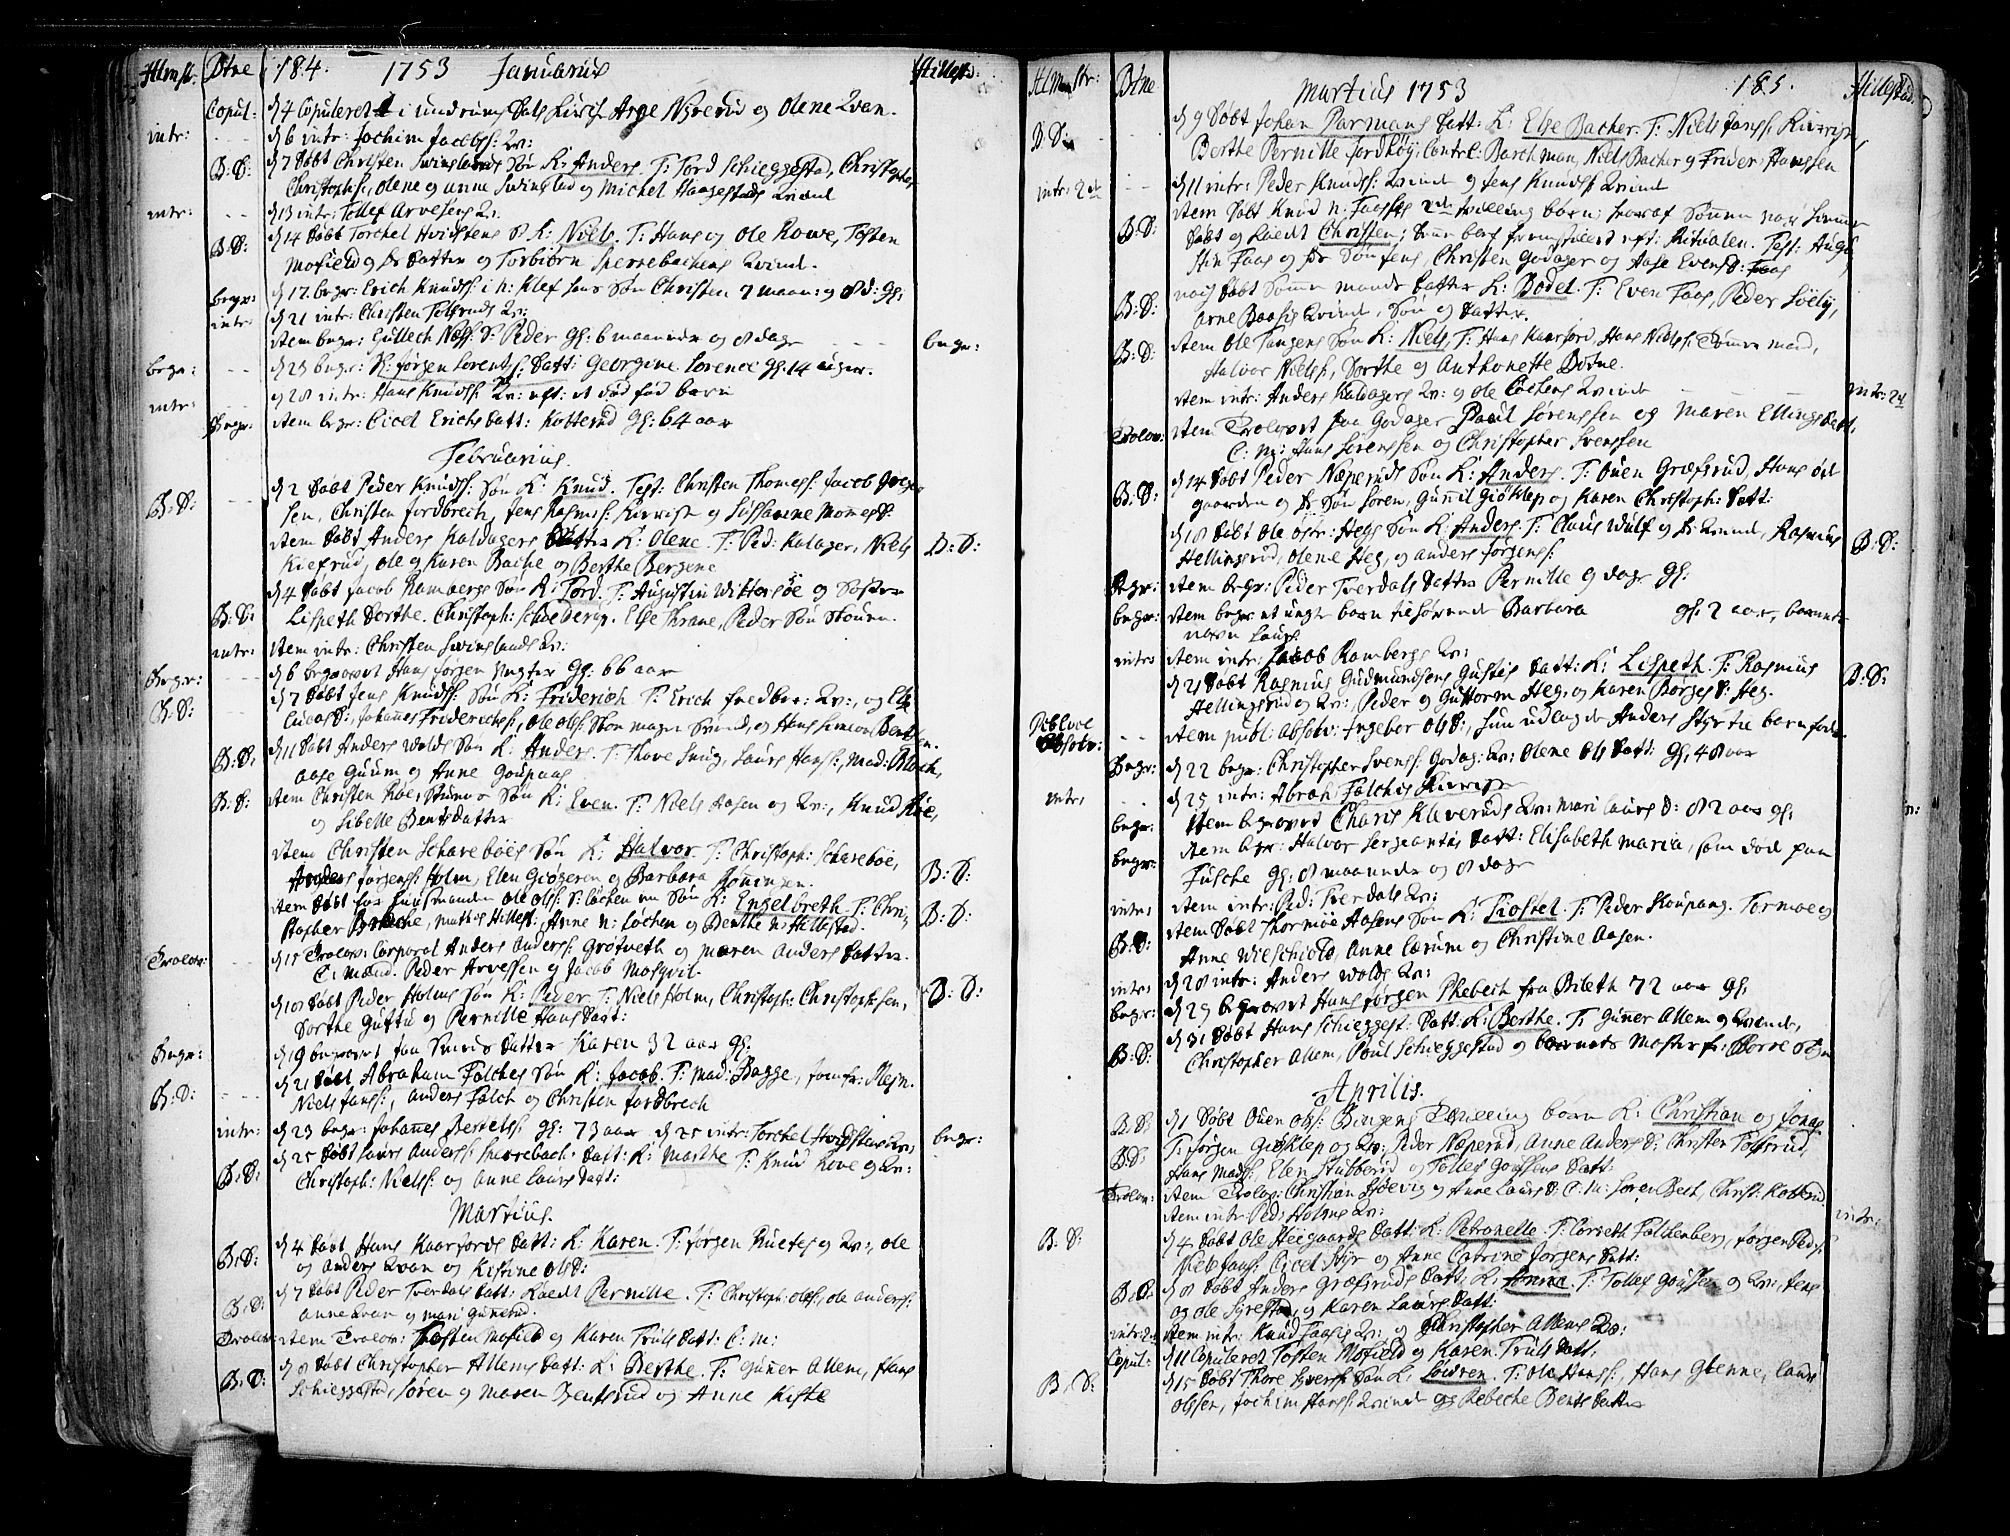 Hlmst: Btne 184. 1753 Januarius Hillest:
Copul: d 4 Copuleret i undrums Dals Kirche Arne Nyerud og Olene Evan.
intr: d 6 intr: Jochim Jacobs: Qv:
B: D: d 7 døbt Christen Swinglands Søn K: Anders. T: Tord Schieggestad, Christopher
Christophs:, Olene og Anne Swinglad og Michel Haagestads Qvind
intr: d 13 intr: Tollef Arvesens Qv.
B: D: d 14 døbt Torchel Hvidstens S K: Niels. T: Hans og Ole Rowe, Tosten
Mofield og Dr Datter og Torbiørn Sperrebachens Qvind.
begr: d 17. begr: Erich Knuds: i n: Klef hans Søn Christen 7 maan: og 8 d: gl:
intr: d 21 intr: Christen Tolfsruds Qv:
Item begr: Gullech Næss: S: Peder gl: 6 maaneder og 8 dage begr:
begr: d 23 begr: Hr: Jørgen Lorents: Datt: Georgine Lorence gl: 14 uger.
intr: d 28 intr: Hans Knuds: Qv: eft: et død fød barn
Begr: Item begr: Cicel Erichs Datt: Kotterud gl: 64 aar
Februarius.
B: D: d 2 døbt Peder Knuds: Søn K: Knud. Test: Christen Thomes: Jacob Jørgen
sen, Christen Jordbrech, Jens Rasmus: Kurrist og Sussanne Monnes D:
Item døbt Anders Kaldagers Datter K: Olene. T: Ped: Kalager, Niels D: D:
Kiefrud, Ole og Karen Bache og Berthe Bergene
d 4 døbt Jacob Rambergs Søn K: Tord. T: Augustin Wittersøe og Søster
B: D: Lispeth Dorthe. Christoph: Schoederup. Else Thrane, Peder Søn Skoum.
intr: Item intr: Christen Swinglands Qv:
Begr: d 6 begravet Hans Jørgen Ungter gl: 66 aar
B: D: d 7 døbt Jens Knuds: Søn K: Friderich T: Erich Jordbr: Qv:, og Else
Lucas D:, Johannes Friderichs:, Ole Ols: Skomager Svend, og Hans Simeon Bentsen.
B: D: d 11 døbt Anders Wolds Søn K: Anders. T: Thove Smug, Laurs Hans:, Mad: Bloch,
Aase Guum og Anne Goupaas
B: D: Item Christen Roe: Søn K: Even. T: Niels Aasen og Qv:, Knud Roe,
og Sibelle Bentsdatter
Item Christen Scharebøes Søn K: Halvor. T: Christoph: Scharebøe, B: D:
Jørgens: Holm, Elen Giøgeren og Barbara Honningen.
Item døbt for Huusmanden Ole Ols: S: Løchen en Søn K: Engelbreth. T: Chri-
stopher Botne, Mathis Hillest: Anne n: Løchen og Berthe n: Hillestad. B: D:
Trolov: d 15 Trolov: Corporal Anders Anders: Grøtveth og Maren Anders Datter.
C: Mænd. Peder Arvessen og Jacob Mosqvil.
d 18 døbt Peder Holms Søn K: Peder T: Niels Holm, Christoph: Christophersen, D: D:
Dorthe Guttu og Pernille Hans Datt:
Begr: d 19 begravet Datter Karen 32 aar gl:
B: D: d 21 døbt Abraham Falches Søn K: Jacob. T: Mad: Bagge, Jomfr: Flejn.
Niels Jans:, Anders Falch og Christen Jordbrech
intr: d 23 begr: Johannes Bertels: gl: 73 aar d 25 intr: Torchel Hvidstens Qv: begr:
B: D: d 25 døbt Laurs Anders: Sperrebach: Datt: K: Marthe T: Knud Rove og Qv:
Christoph: Niels: og Anne Laurs Datt:
Martius.
B: D: d 4 døbt Hans Kaarfords Datt: K: Karen. T: Jørgen Ruetes og Qv:, Ole
og Anders Evan og Kistine Ols D:
B: D: d 7 døbt Peder Tverdals Datt: kaldt Pernille. T: Christoph: Ols:, Ole Anders:
Anne Evan og Mari Gunestad.
Trolov: Item Trolov: Tosten Mofield og Karen Truls Datt: C: M:
B: D: d 8 døbt Christopher Allems Datt: K: Berthe. T: Guner Allem, Hans
Schieggestad, Søren og Maren Tentsrud og Anne Kiste
Hlmstr: Btne Martius 1753 185. Hillestad.
B: D: d 9 døbt Johan Parmans Datt: K: Else Bacher. T: Niels Jans: Kurrist,
Berthe Pernille Jordkøy, Contrl: Barchman, Niels Bacher og Frider: Hanssen
intr: 2de d 11 intr: Peder Knuds: Qvind og Jens Knuds: Qvind
B: D: Item døbt Knud n: Faasses 2de tvilling børn; hvoraf Sønnen var hiemme
døbt og kaldt Christen; Test: Augu-
stin Faas og Dr Søn Jens, Christen Godager og Aase Evens D: Faas
B: D: Datter K: Bodel. T: Even Faas, Peder Søeby,
Arne Baasis Qvind, Søn og Datter.
B: D: Item Ole Tangens Søn K: Niels. T: Hans Kaarford, Hans Niels: Tømmermand,
Halvor Niels:, Dorthe og Anthonette Botne.
Item intr: Anders Kaldagers Qv: og Ole Løchens Qvind intr: 2de
Trolov: Item Trolovet paa Godager Poul Sørenssen og Maren Ellings Datt:
C: M: Hans Sørenssen og Christopher Svenssen
B: D: d 14 døbt Peder Næperuds Søn K: Anders. T: Ouen Græfsrud, Hans øde
gaarden og Dr Søn Soren, Gunnil Giøklep og Karen Christoph: Datt:
d 18 døbt Ole ostr: Hegs Søn K: Anders. T: Claus Wulf og Dr Qvind, Rasmus B: D:
Hellingsrud, Olene Heg, og Anders Jørgens:
Begr: Item begr: Peder Tverdals Datter Pernille 9 dage gl:
begr: Item begr et ungt barn tilhørende Barbara gl: 2 aar, barnets
navn Laurs
intr: Item intr: Jacob Rambergs Qv:
d 21 døbt Rasmus Gudmundsens Gustis Datt: K: Lispeth. T: Rasmus D: D:
Hellingsrud og Qv:, Peder og Guttorm Heg, og Karen Børges D: Heg.
Publice Absolv: Item publ: Absolv: Ingebor Ols D:, hun udlagde Anders Styr til barnefader
Begr: d 22 begr: Christopher Svens: Godag: Qv: Olene Ols Datt: gl: 48 aar
intr: d 25 intr: Abrah: Falches Kurrist
begr: Item begravet Charis Klaveruds Qv: Mari Laurs D: 82 aar gl:
begr: Item begr: Halvor Sergeantes Datt: Elisabeth Maria, som død paa
Fusche gl: 8 maaneder og 8 dage
intr: Item intr: Ped: Tverdals Qv:
B: D: Item døbt Thormoe Aasens Søn K: Trostel. T: Peder Skoupang. Tormoe og
Anne Wieschiold, Anne Cærum og Christine Aasen.
intr: d 28 intr: Anders Wolds Qv:
begr: d 29 begravet Hans Jørgen Rhebech fra Bileth 72 aar gl:
B: D: d 31 døbt Hans Schieggest: Datt: K: Berthe. T: Guner Allem og Qvinde,
Christopher Allem, Poul Schieggestad og barnets Moster fr: Borre Sogn
Aprilis.
B: D: d 1 døbt Ouen Ols: Bingens Tvilling børn K: Christian og Jonas
B: D: T: Jørgen Giøklep og Qv: Peder Næperud, Anne Anders D: Christen Tolfsrud,
Hans Mads:, Elen Stubberud og Tolles Goussens Datt:
Trolov: Item Trolov: Christian Hoevig og Anne Laurs D: C: M: Søren Bert, Christ: Kotterud
Item intr: Ped: Holms Qv: intr:
B: D: d 4 døbt Ole Heegaards Datt: K: Petronelle. T: Torgeth Falchenberg, Jørgen Peders:
Niels Jans: Cicel Styr og Anne Catrine Jørgens Datt:
B: D: d 8 døbt Anders Græfsruds Datt: K: Anna. T: Tolles Goussen og Qv:, Jens
og Ole Syrestad, og Karen Laurs Datt:
intr: 2de Item intr: Knud Faasis Qv: og Christopher Allems Qv:
Copul: d 11 Copuleret Tosten Mofield og Karen Truls Datt:
B: D: d 15 døbt Thore Ivers: Søn K: Søvren. T: Ole Hans:, Hans Glenne, Laurs
Olssen, Jochim Hans: Qvind og Rebeche Bents Datter